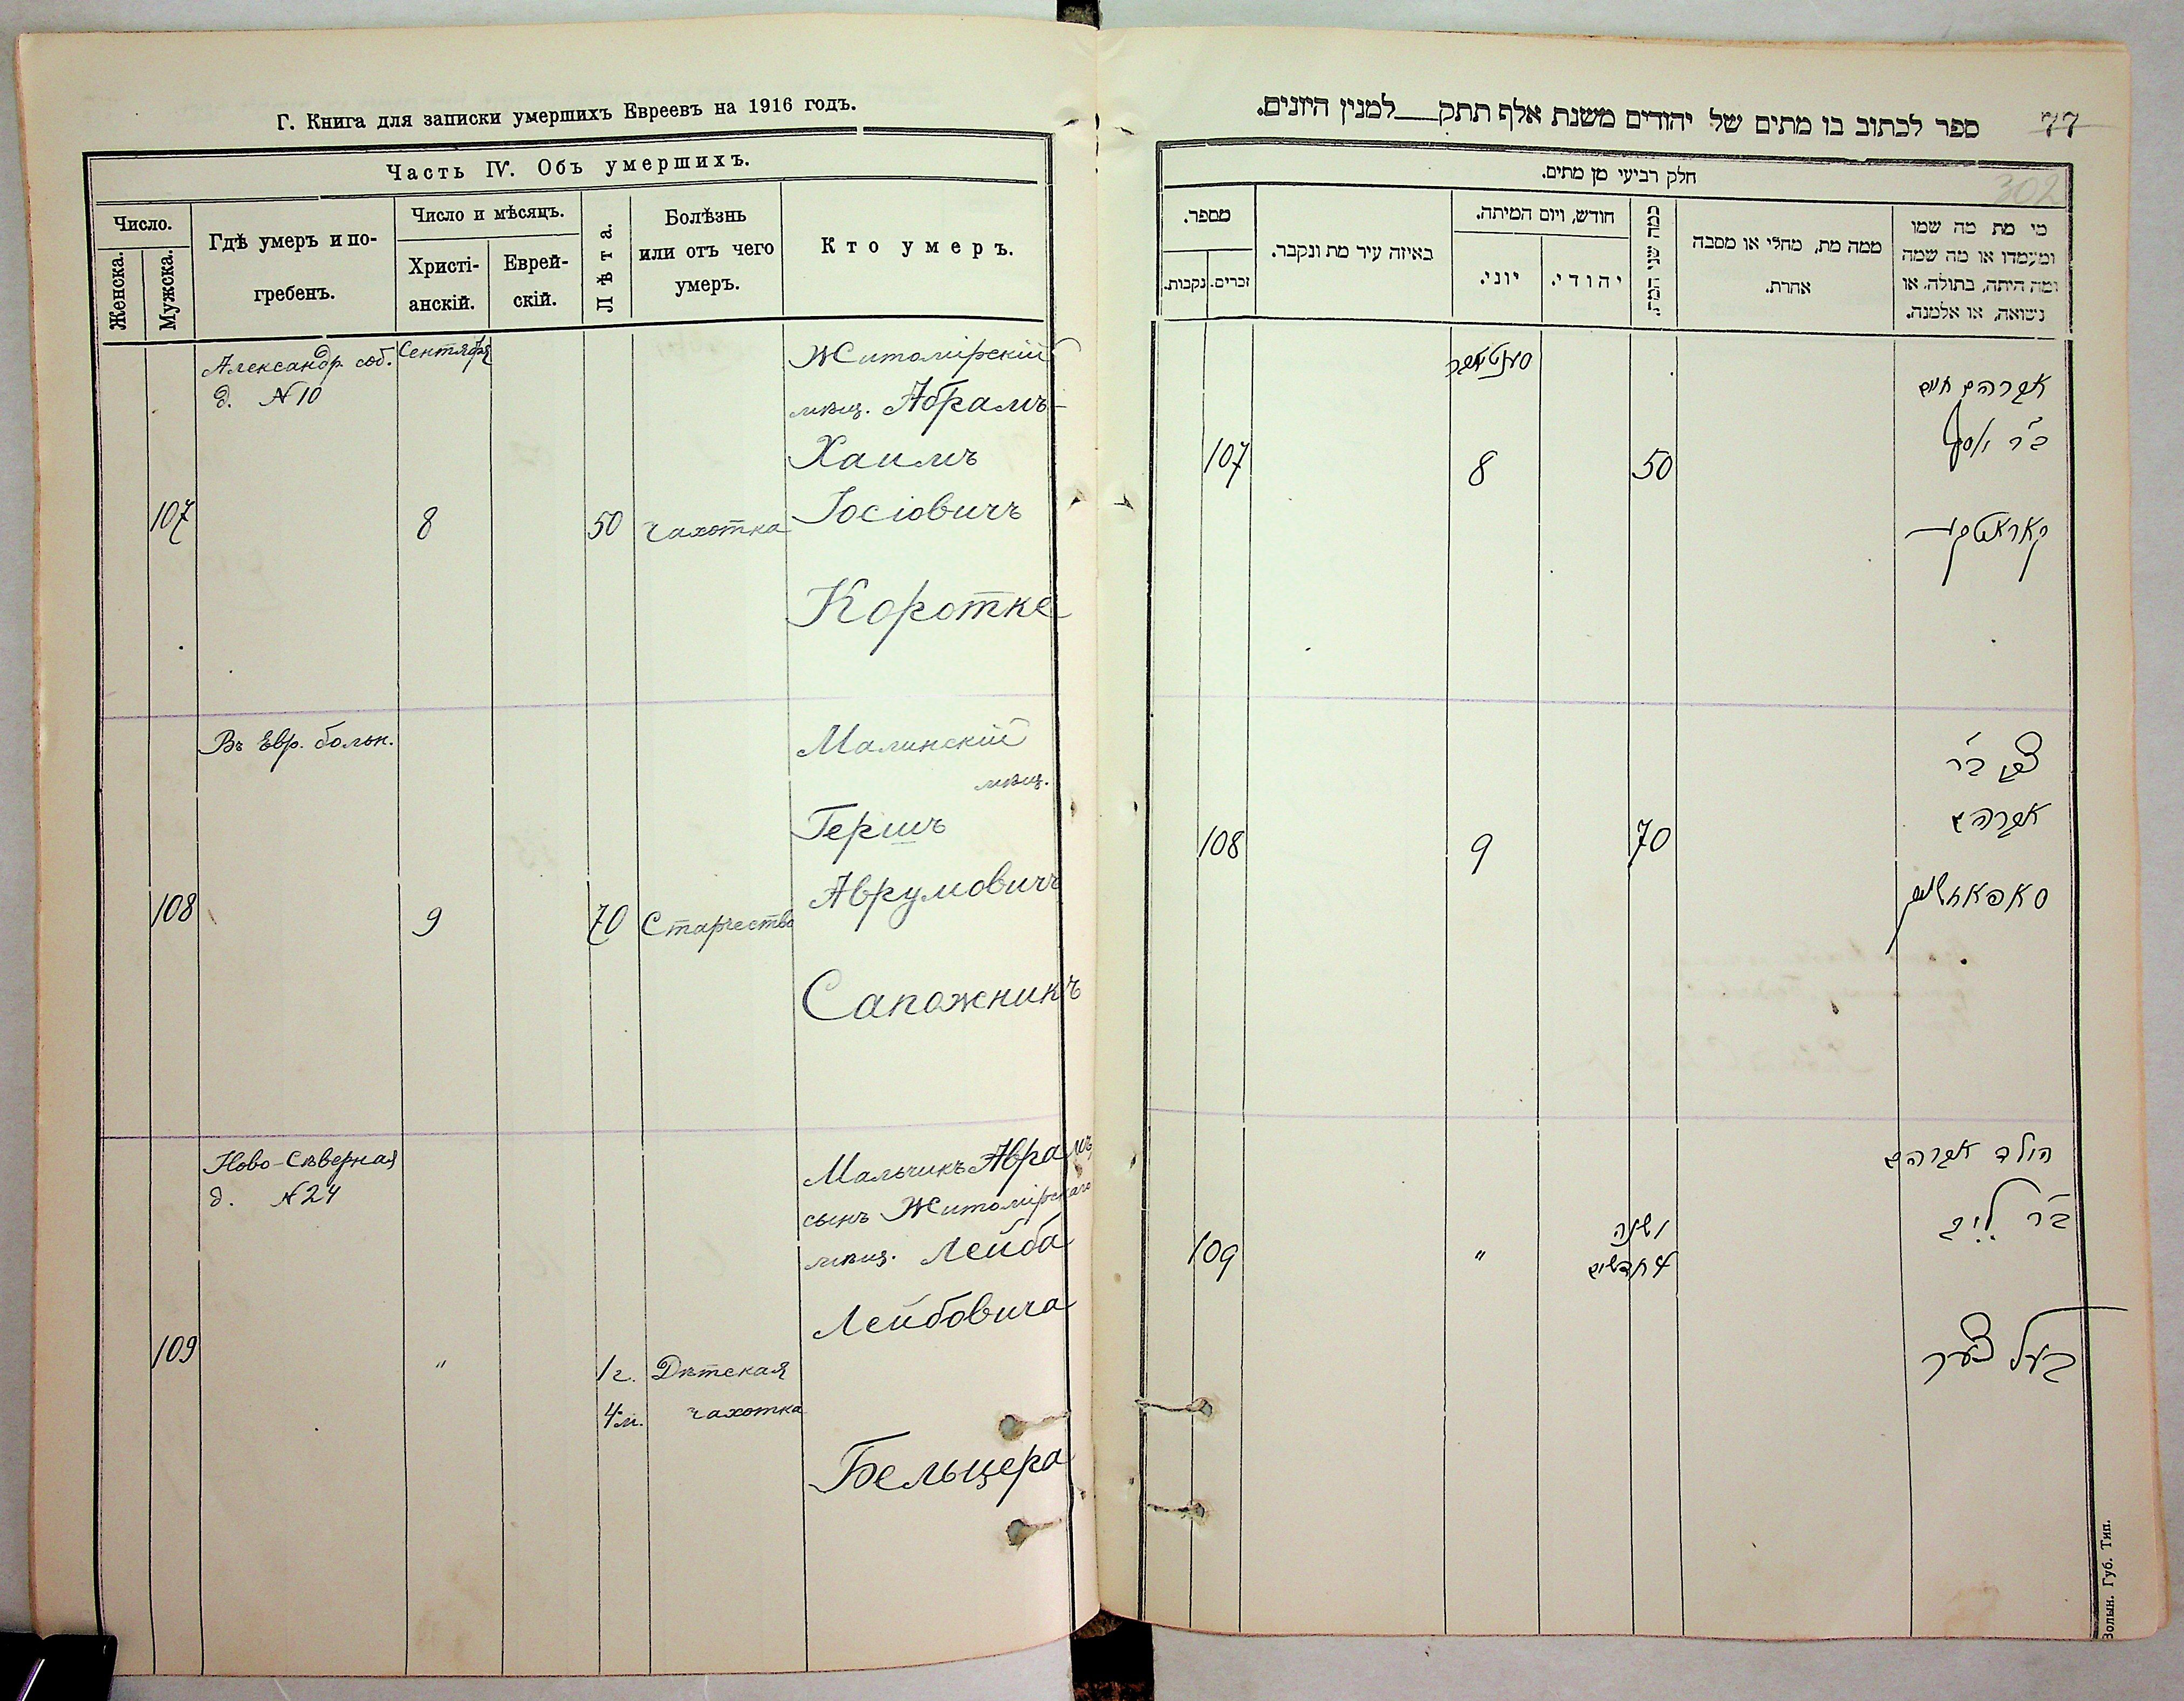 Г. Книга для записки умершихъ Евреевъ на 1916 годъ.
Часть IV. Объ умершихъ.
Число.
Женска.
Мужска.
Гдѣ умеръ и по-
гребенъ.
Число и мѣсяцъ.
Христі-
анскій.
Еврей-
скій.
Лѣта.
Болѣзнь
или отъ чего
умеръ.
Кто умеръ.
Александр. соб.
д. № 10
Сентября
107
8
50
чахотка
Житомірскій
мѣщ. Абрамъ-
Хаимъ
Іосіовичъ
Коротке
Въ Евр. больн.
108
9
70
Старчество
Малинскій
мѣщ.
Гершъ
Аврумовичъ
Сапожникъ
Ново-Сѣверная
д. № 24
109
"
1 г.
4 м.
Дѣтская
чахотка
Мальчикъ Аврамъ
сынъ Житомірскаго
мѣщ. Лейба
Лейбовича
Бельцера
77
302
ספר לכתוב בו מתים של יהודים משנת אלף תתק למנין היונים.
חלק רביעי מן מתים.
מספר.
זכרים.
נקבות.
באיזה עיר מת ונקבר.
חודש, ויום המיתה.
יוני.
יהודי.
כמה שני המת.
ממה מת, מחלי או מסבה
אחרת.
מי מת מה שמו
ומעמדו או מה שמה
ומה היתה, בתולה, או
נשואה, או אלמנה.
107
סענטאבר
8
50
אברהם חיים
ב"ר יוסף
קאראטקי
108
9
70
צבי ב"ר
אברהם
סאפאזשניק
109
"
1 שנה
4 חדשים
הילד אברהם
ב"ר לייב
בעלצער
Волын. Губ. Тип.